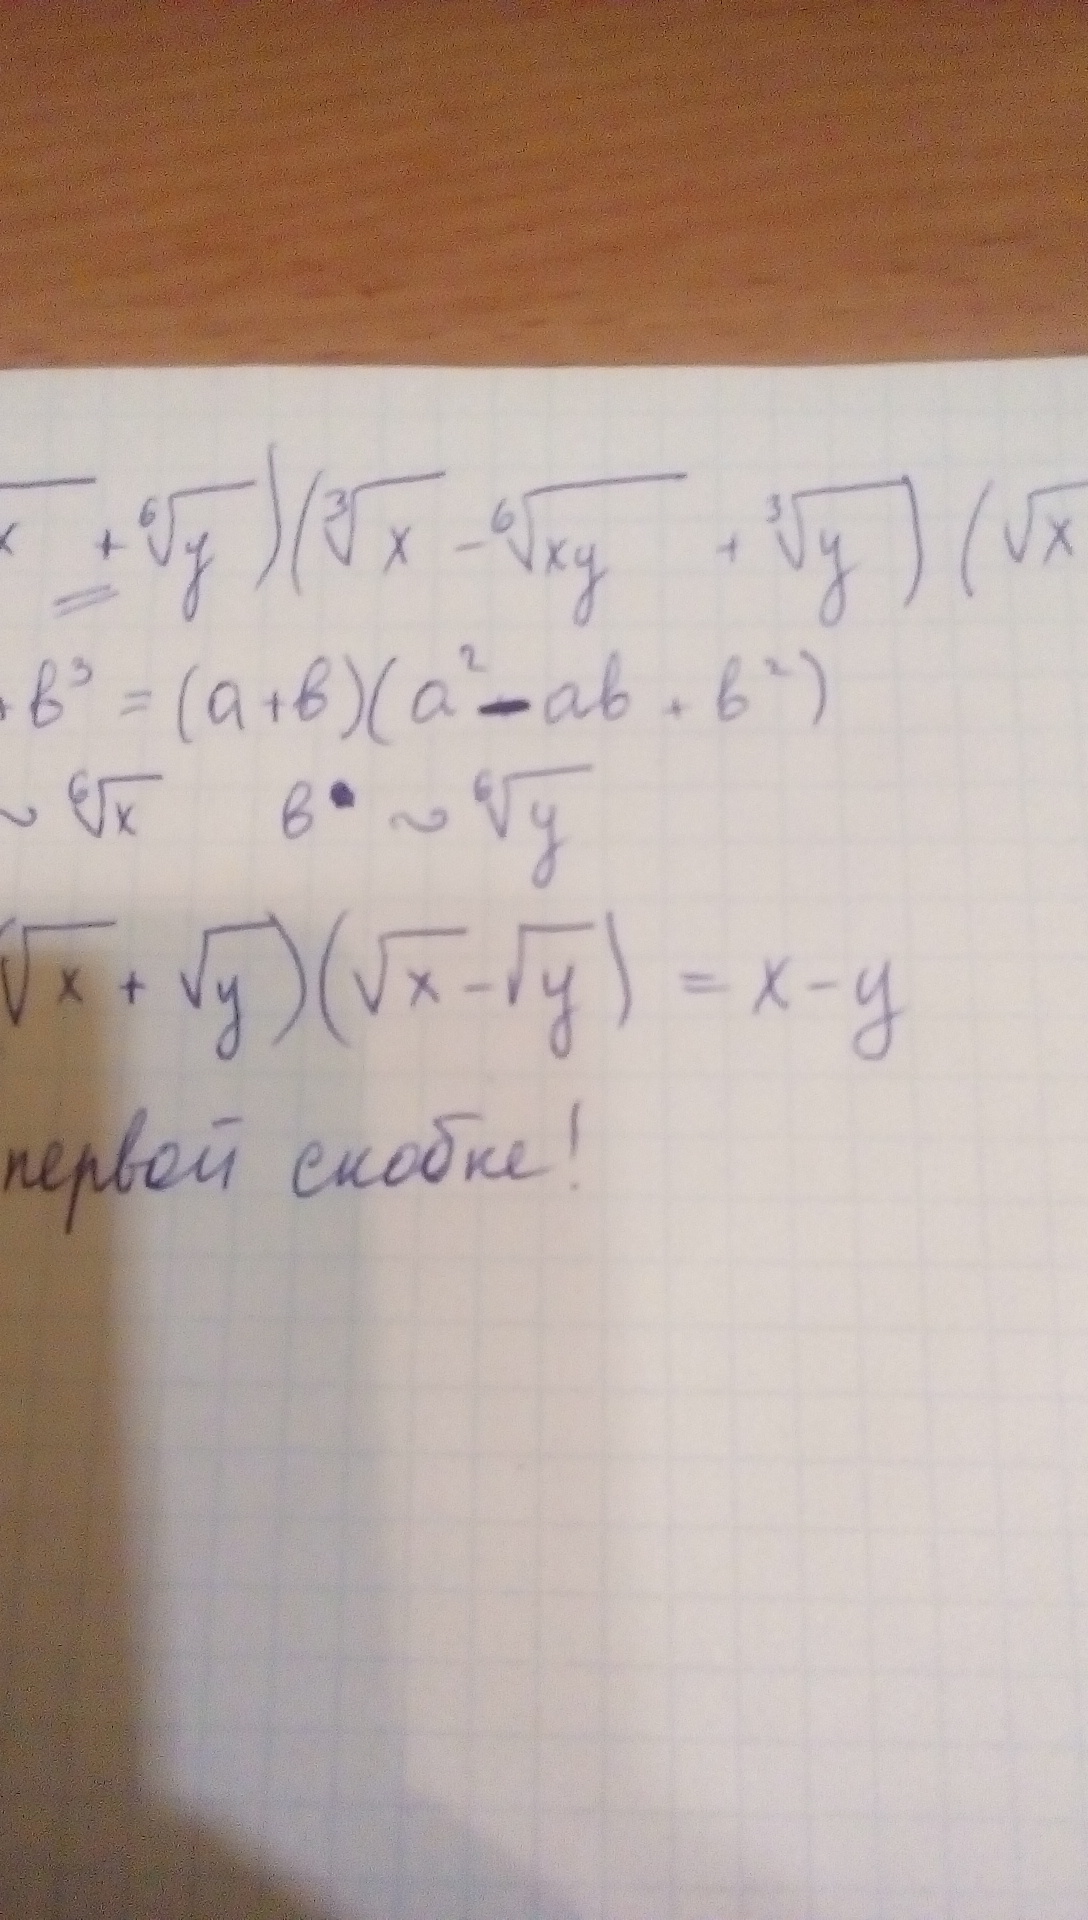 x + ⁶√y)(³√x - ⁶√xy + ³√y)(√x
+ в³ = (а+в)(а² - ав + в²)
~ ⁶√x в ~ ⁶√y
(√x + √y)(√x - √y) = x - y
первой скобке!